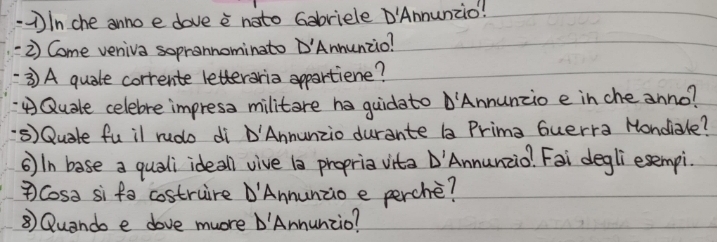 -1) In che anno e dove è nato Gabriele D'Annunzio?
-2) Come veniva soprannominato D'Annunzio?
-3) A quale corrente letteraria appartiene?
-4) Quale celebre impresa militare ha guidato D'Annunzio e in che anno?
-5) Quale fu il ruolo di D'Annunzio durante la Prima Guerra Mondiale?
6) In base a quali ideali vive la propria vita D'Annunzio? Fai degli esempi.
7) Cosa si fa costruire D'Annunzio e perchè?
8) Quando e dove muore D'Annunzio?